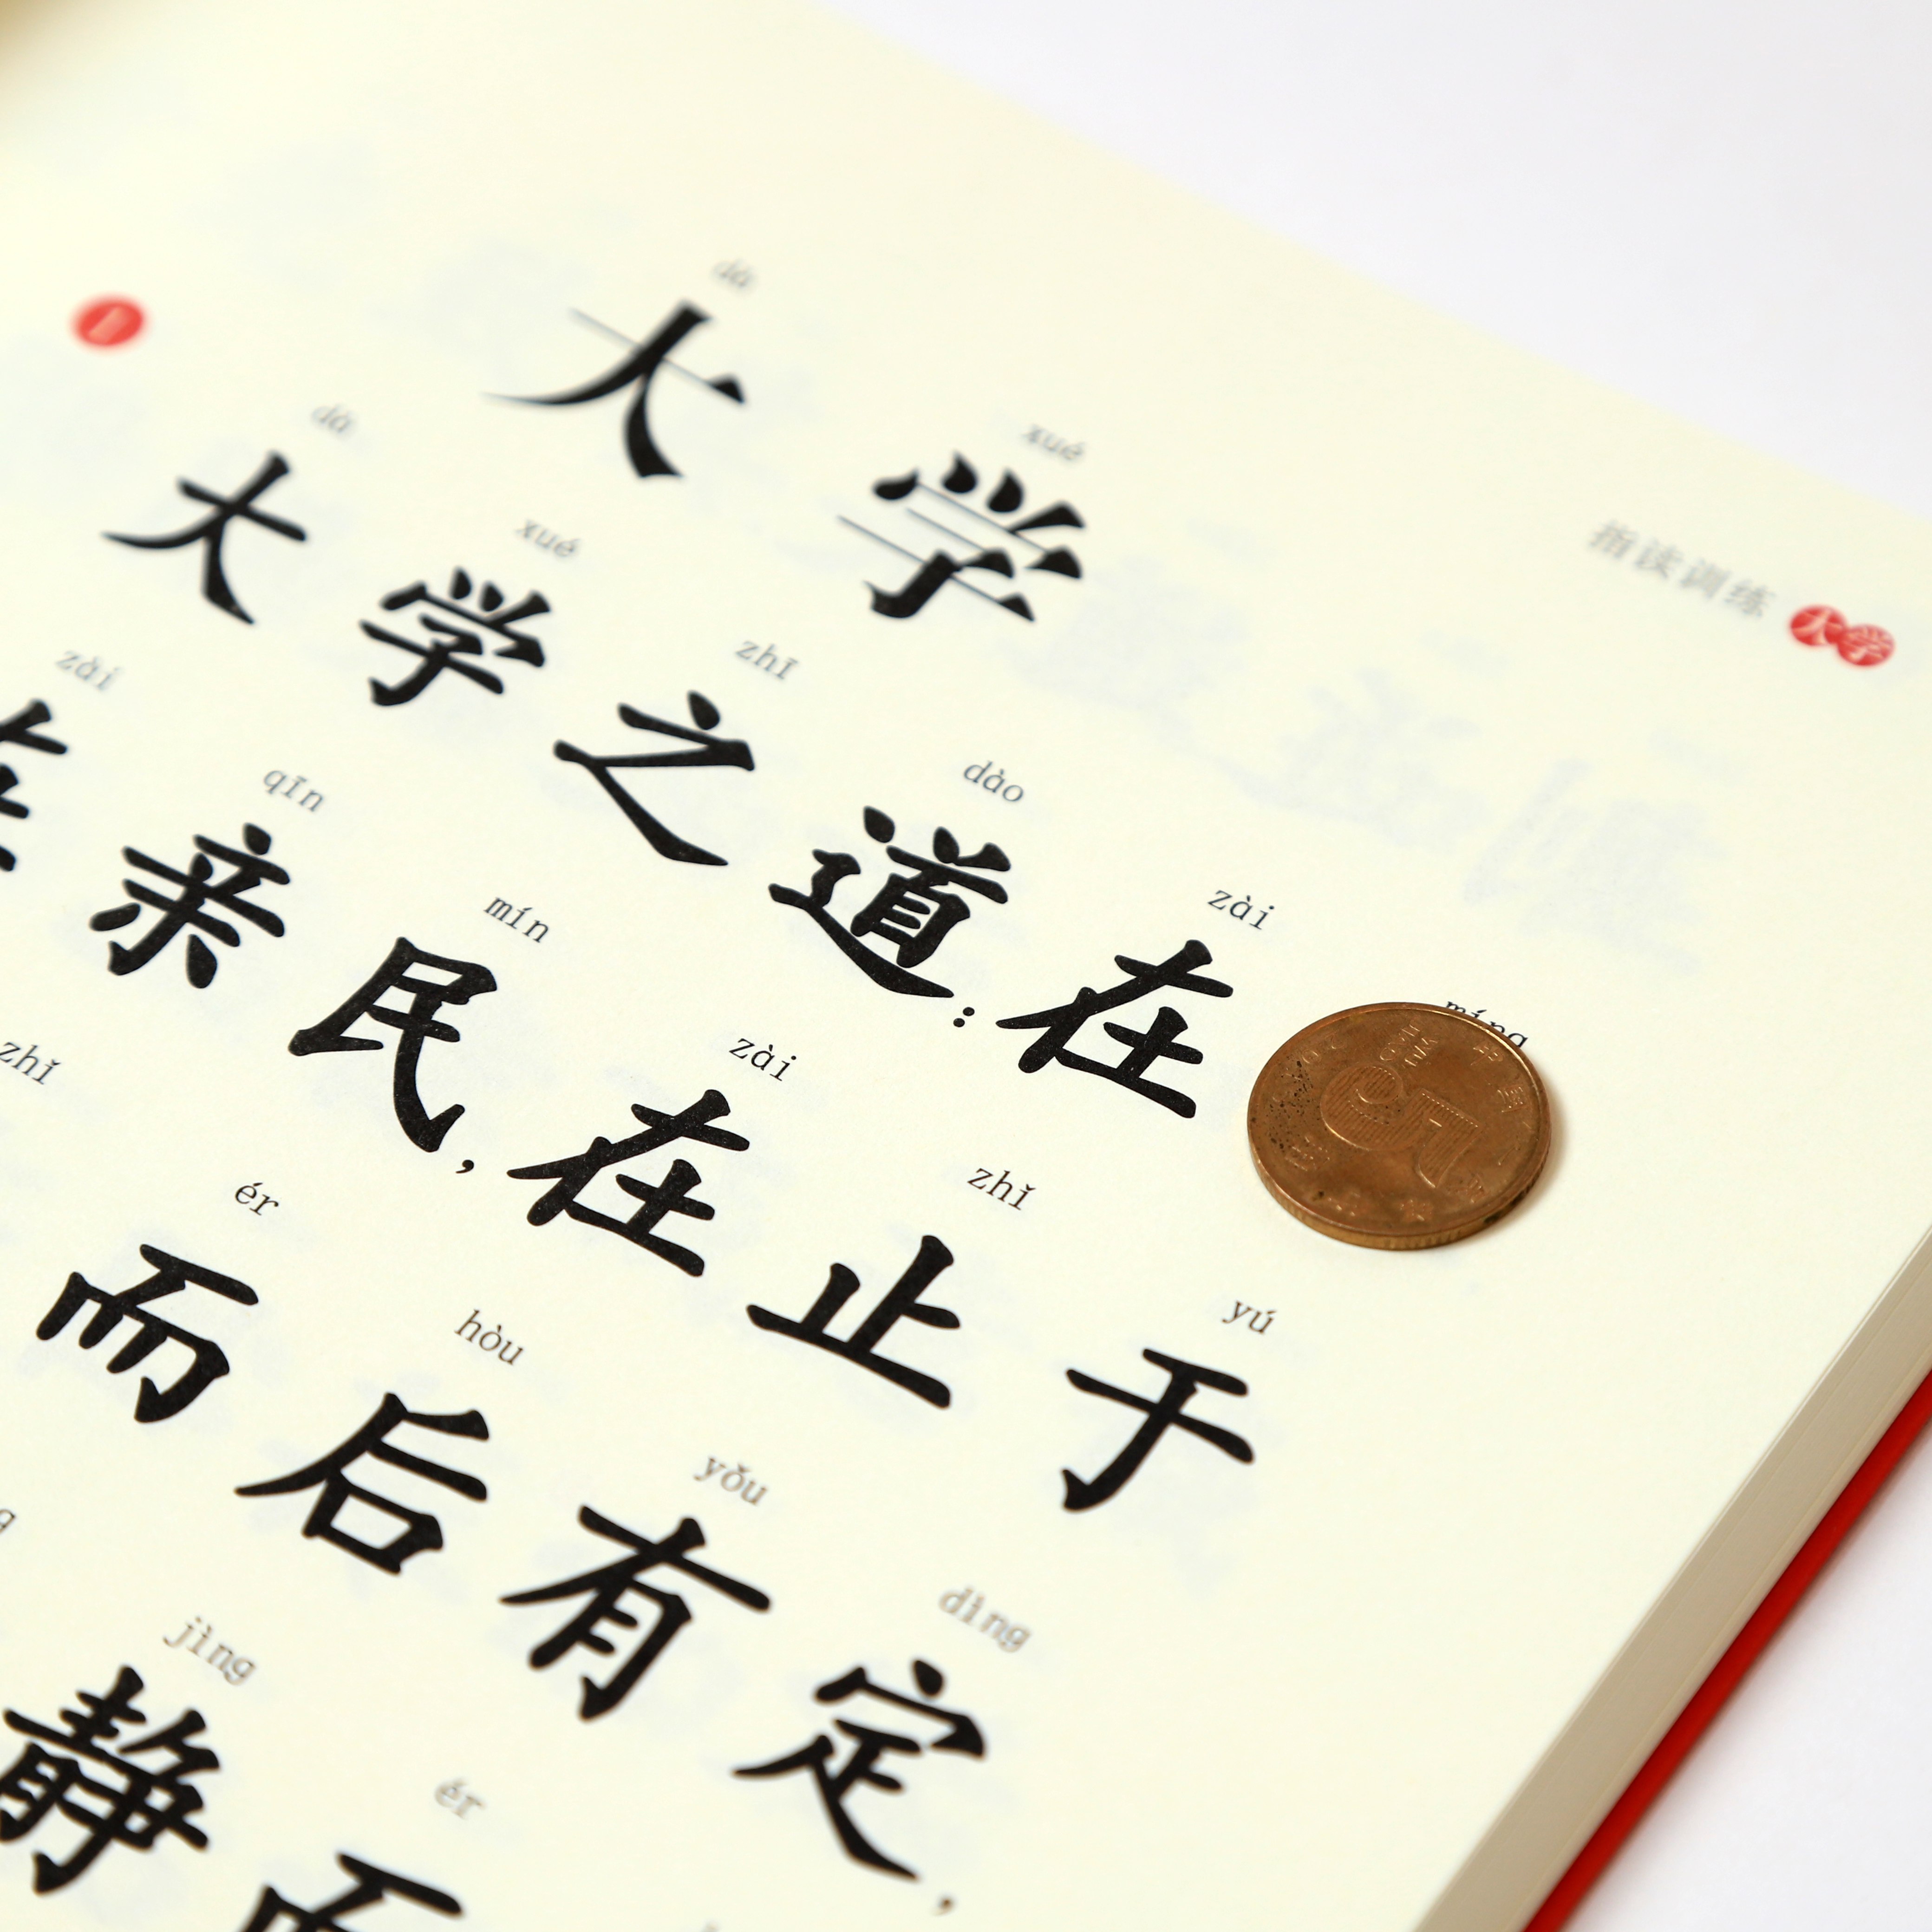 指读训练 大学
dà xué
大学
dà xué zhī dào zài míng
大学之道:在
zài qīn mín zài zhǐ yú
亲民,在止于
zhǐ ér hòu yǒu dìng
而后有定,
jìng ér
静而
5